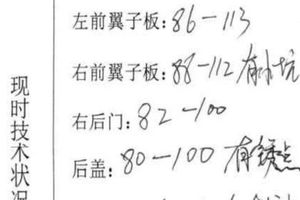 现时技术状况
左前翼子板：86-113
右前翼子板：88-112 有小坑
右后门：82-100
后盖：80-100 有锈点